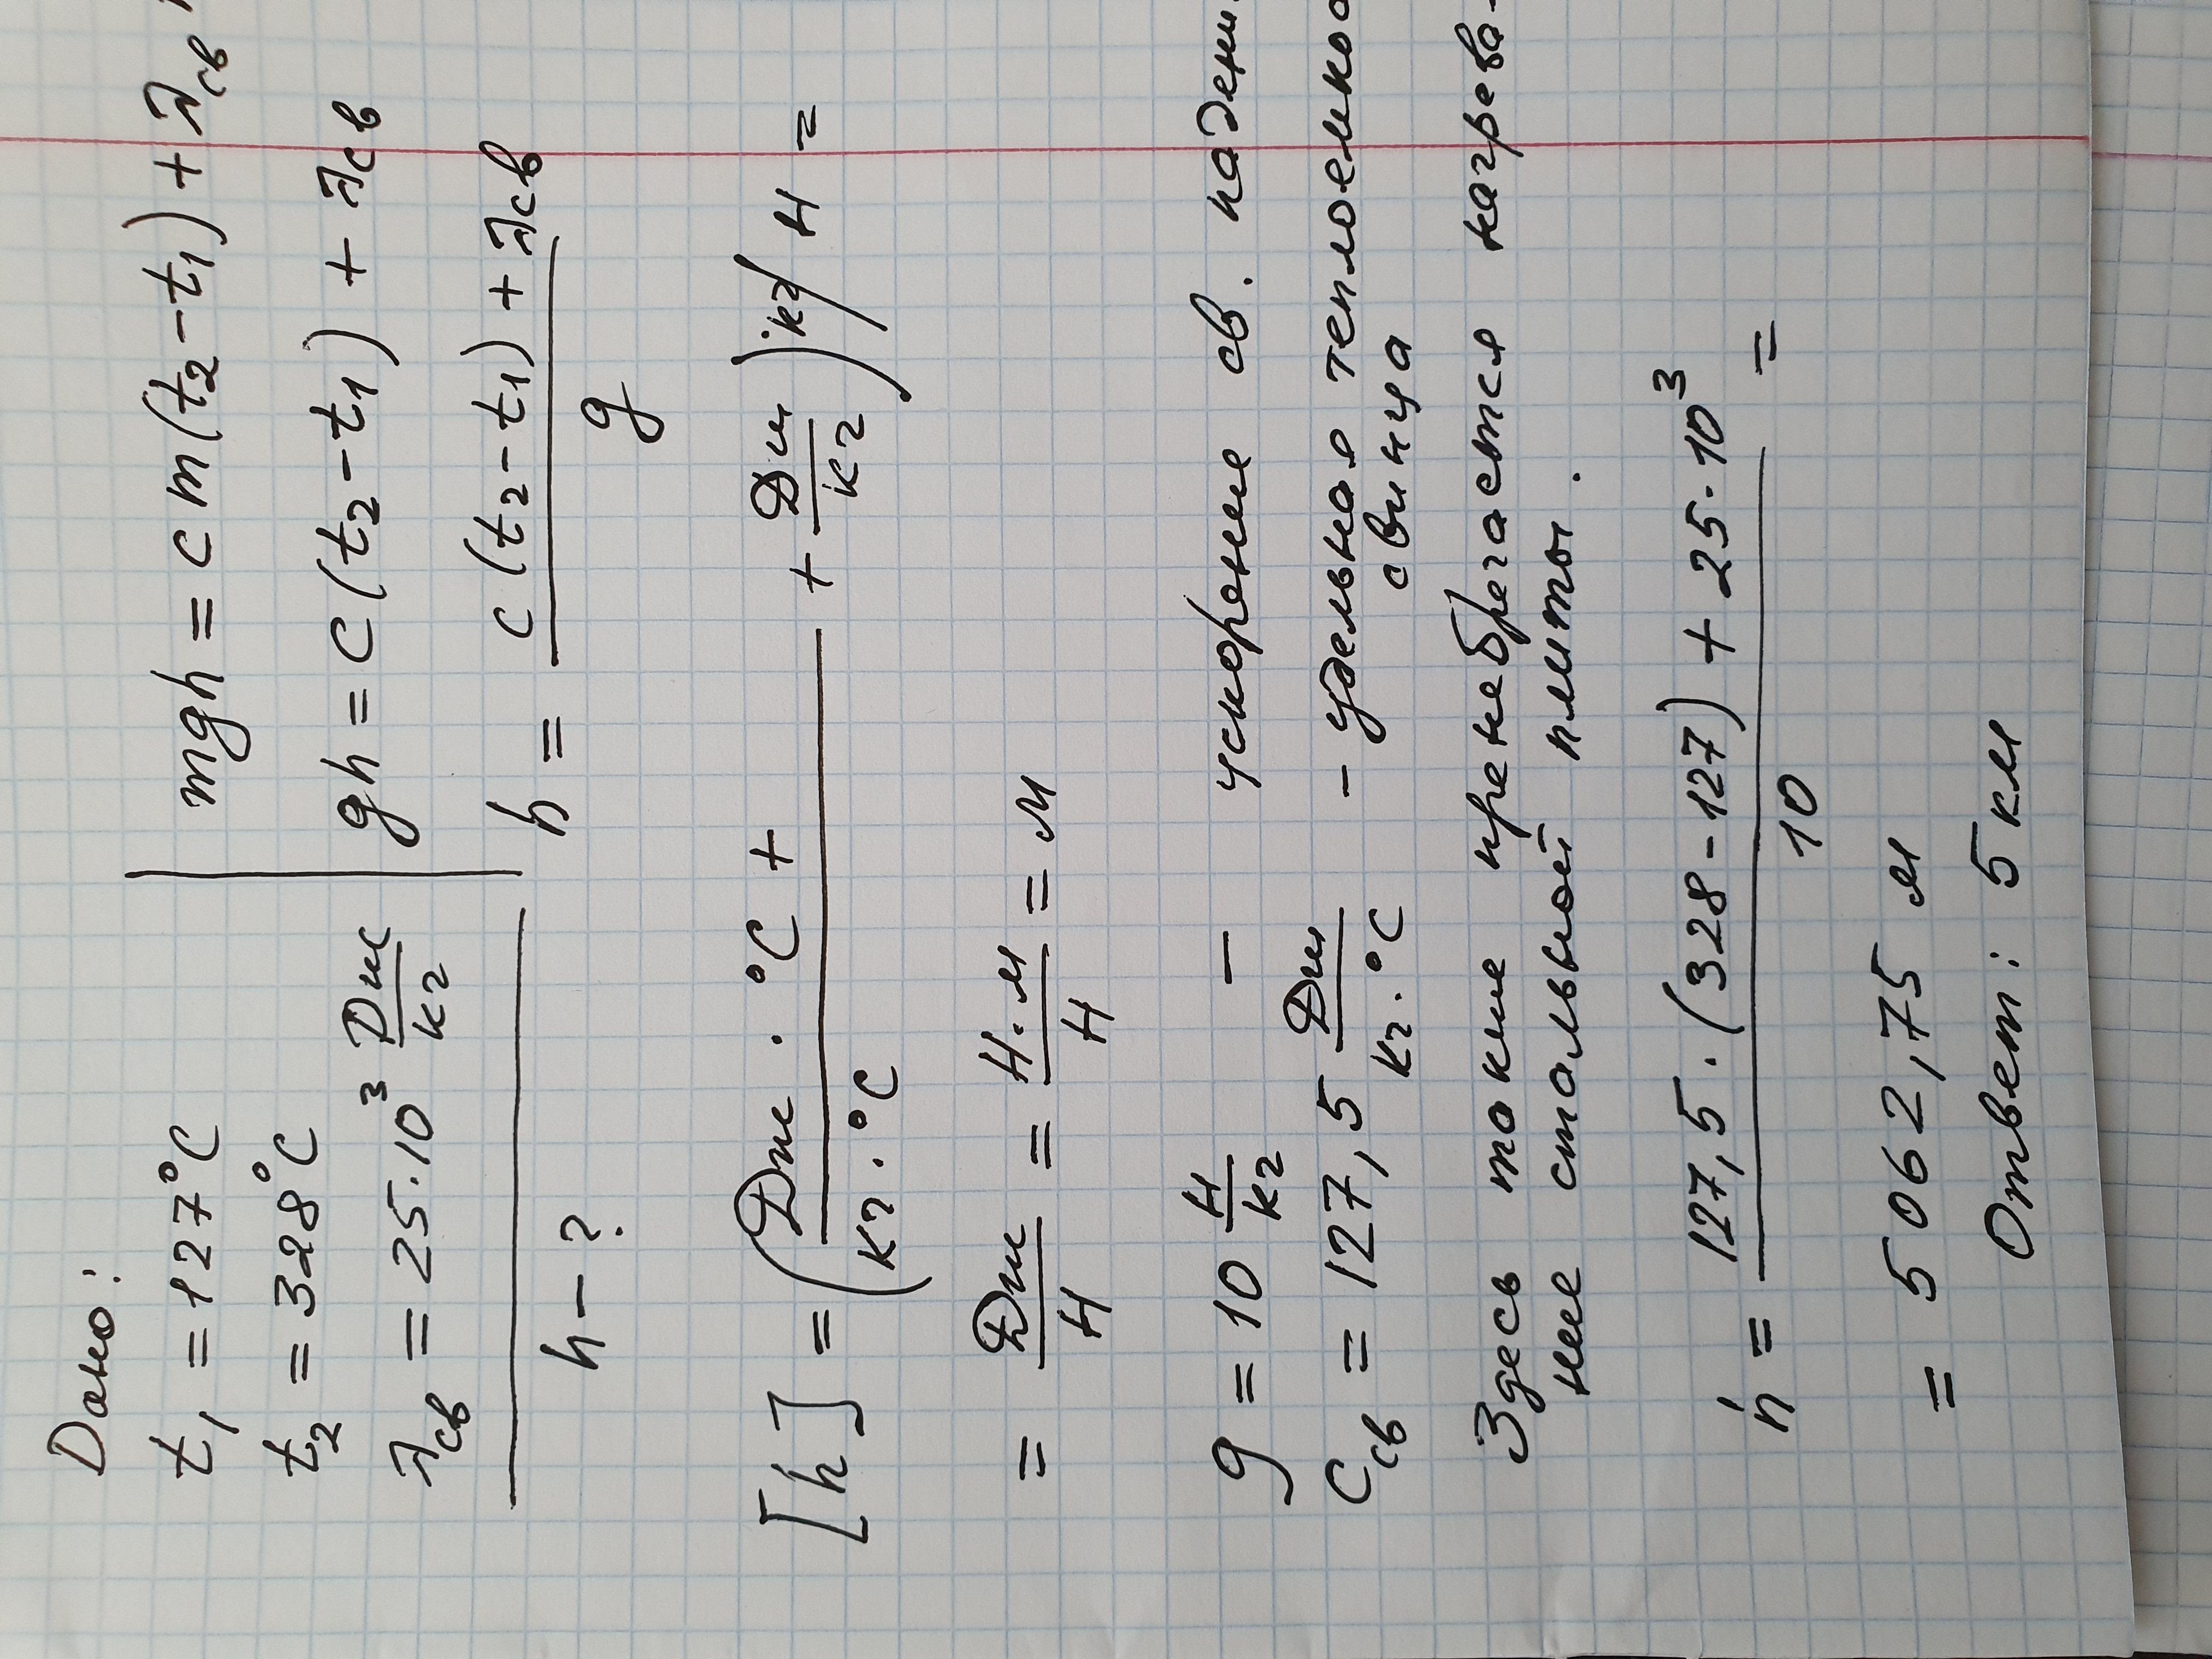 Дано:
t₁ = 127°C
t₂ = 328°C
λсв = 25·10³ Дж/кг
h - ?
mgh = cm(t₂-t₁) + λсв
gh = c(t₂-t₁) + λсв
h = (c(t₂-t₁) + λсв)/g
[h] = (Дж·°C/кг·°C + + Дж/кг)кг/Н =
= Дж/Н = Н·м/Н = м
g = 10 Н/кг - ускорение св. падени
Cсв = 127,5 Дж/кг·°C - удельная теплоемко
свинца
Здесь также пренебрегается нагрева-
ние стальной плиты.
h = (127,5·(328-127) + 25·10³)/10 =
= 5062,75 м
Ответ: 5 км